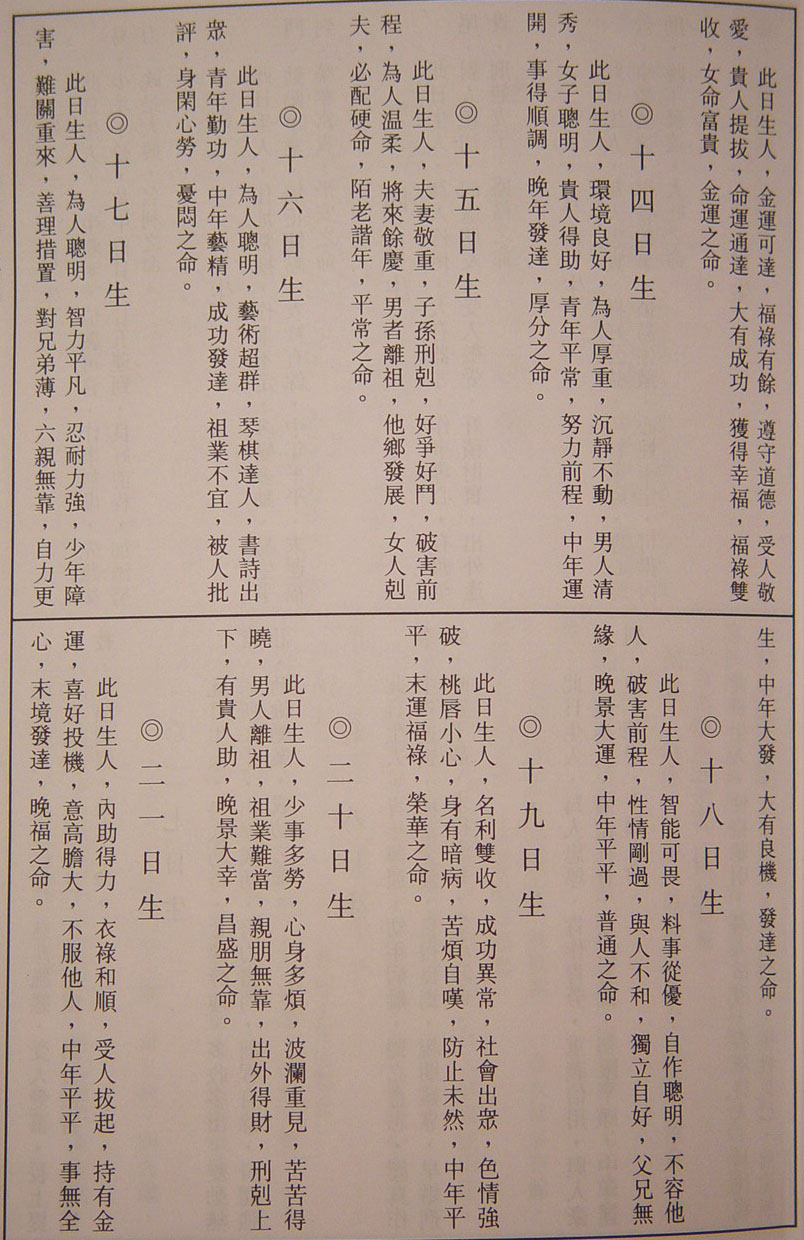 此日生人，金運可達，福祿有餘，遵守道德，受人敬
愛，貴人提拔，命運通達，大有成功，獲得幸福，福祿雙
收，女命富貴，金運之命。
◎十四日生
此日生人，環境良好，為人厚重，沉靜不動，男人清
秀，女子聰明，貴人得助，青年平常，努力前程，中年運
開，事得順調，晚年發達，厚分之命。
◎十五日生
此日生人，夫妻敬重，子孫刑剋，好爭好鬥，破害前
程，為人温柔，將來餘慶，男者離祖，他鄉發展，女人剋
夫，必配硬命，陌老諧年，平常之命。
◎十六日生
此日生人，為人聰明，藝術超群，琴棋達人，書詩出
眾，青年勤功，中年藝精，成功發達，祖業不宜，被人批
評，身閑心勞，憂悶之命。
◎十七日生
此日生人，為人聰明，智力平凡，忍耐力強，少年障
害，難關重來，善理措置，對兄弟薄，六親無靠，自力更
生，中年大發，大有良機，發達之命。
◎十八日生
此日生人，智能可畏，料事從優，自作聰明，不容他
人，破害前程，性情剛過，與人不和，獨立自好，父兄無
緣，晚景大運，中年平平，普通之命。
◎十九日生
此日生人，名利雙收，成功異常，社會出眾，色情強
破，桃唇小心，身有暗病，苦煩自嘆，防止未然，中年平
平，末運福祿，榮華之命。
◎二十日生
此日生人，少事多勞，心身多煩，波瀾重見，苦苦得
曉，男人離祖，祖業難當，親朋無靠，出外得財，刑剋上
下，有貴人助，晚景大幸，昌盛之命。
◎二一日生
此日生人，內助得力，衣祿和順，受人拔起，持有金
運，喜好投機，意高膽大，不服他人，中年平平，事無全
心，末境發達，晚福之命。